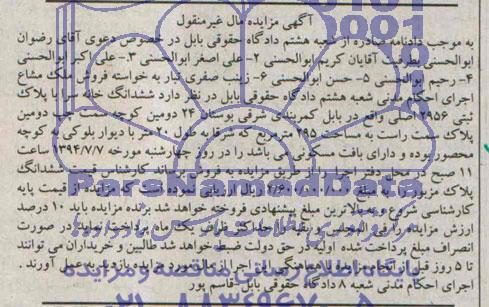 آگهی مزایده مال غیر منقول
به موجب دادنامه صادره از شعبه هشتم دادگاه حقوقی بابل در خصوص دعوی آقای رضوان
ابوالحسنی بطرفیت آقایان کریم ابوالحسنی ۲- علی اصغر ابوالحسنی ۳- علی اکبر ابوالحسنی
۴- رحیم ابوالحسنی ۵- حسن ابوالحسنی ۶- زینب صفری تبار به خواسته فروش ملک مشاع
اجرای احکام مدنی شعبه هشتم دادگاه حقوقی بابل در نظر دارد ششدانگ خانه سرا با پلاک
ثبتی ۲۹۵۶ اصلی واقع در بابل کمربندی شرقی بوستان ۲۴ دومین کوچه سمت چپ دومین
پلاک سمت راست به مساحت ۴۹۵ مترمربع که سرقابه طول ۲۰ متر با دیوار بلوکی به کوچه
محصور بوده و دارای بافت مسکونی می باشد را در روز چهارشنبه مورخه ۱۳۹۴/۷/۷ ساعت
۱۱ صبح در محل دفتر اجرا از طریق مزایده به فروش برساند کارشناس قیمت ششدانگ
پلاک مزبور را به مبلغ ریال ارزیابی نموده است که مزایده از قیمت پایه
کارشناسی شروع و به بالاترین مبلغ پیشنهادی فروخته خواهد شد برنده مزایده باید ۱۰ درصد
ارزش مزایده را فی المجلس و بقیه را حداکثر ظرف یک ماه پرداخت نماید در صورت
انصراف مبلغ پرداخت شده اولیه در حق دولت ضبط خواهد شد طالبین و خریداران می توانند
تا ۵ روز قبل از انجام مزایده با هماهنگی این اجرا از ملک مورد مزایده بازدید به عمل آورند.
اجرای احکام مدنی شعبه ۸ دادگاه حقوقی بابل- قاسم پور
پایگاه اطلاع رسانی مناقصه و مزایده